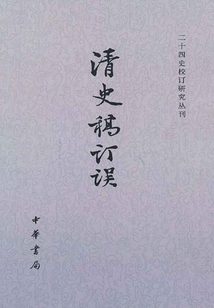 二十四史校订研究丛刊
清史稿订误
中華書局